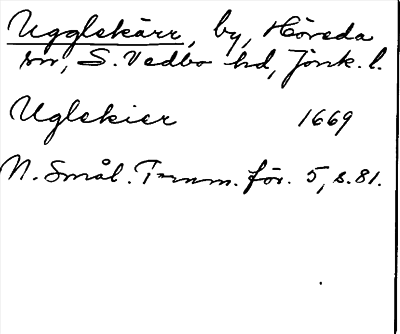 Ugglekärr, by, Höreda
sn, S. Vedbo hd, Jönk. l.
Uglekier 1669
N. Smål. Fornm. för. 5, s. 81.